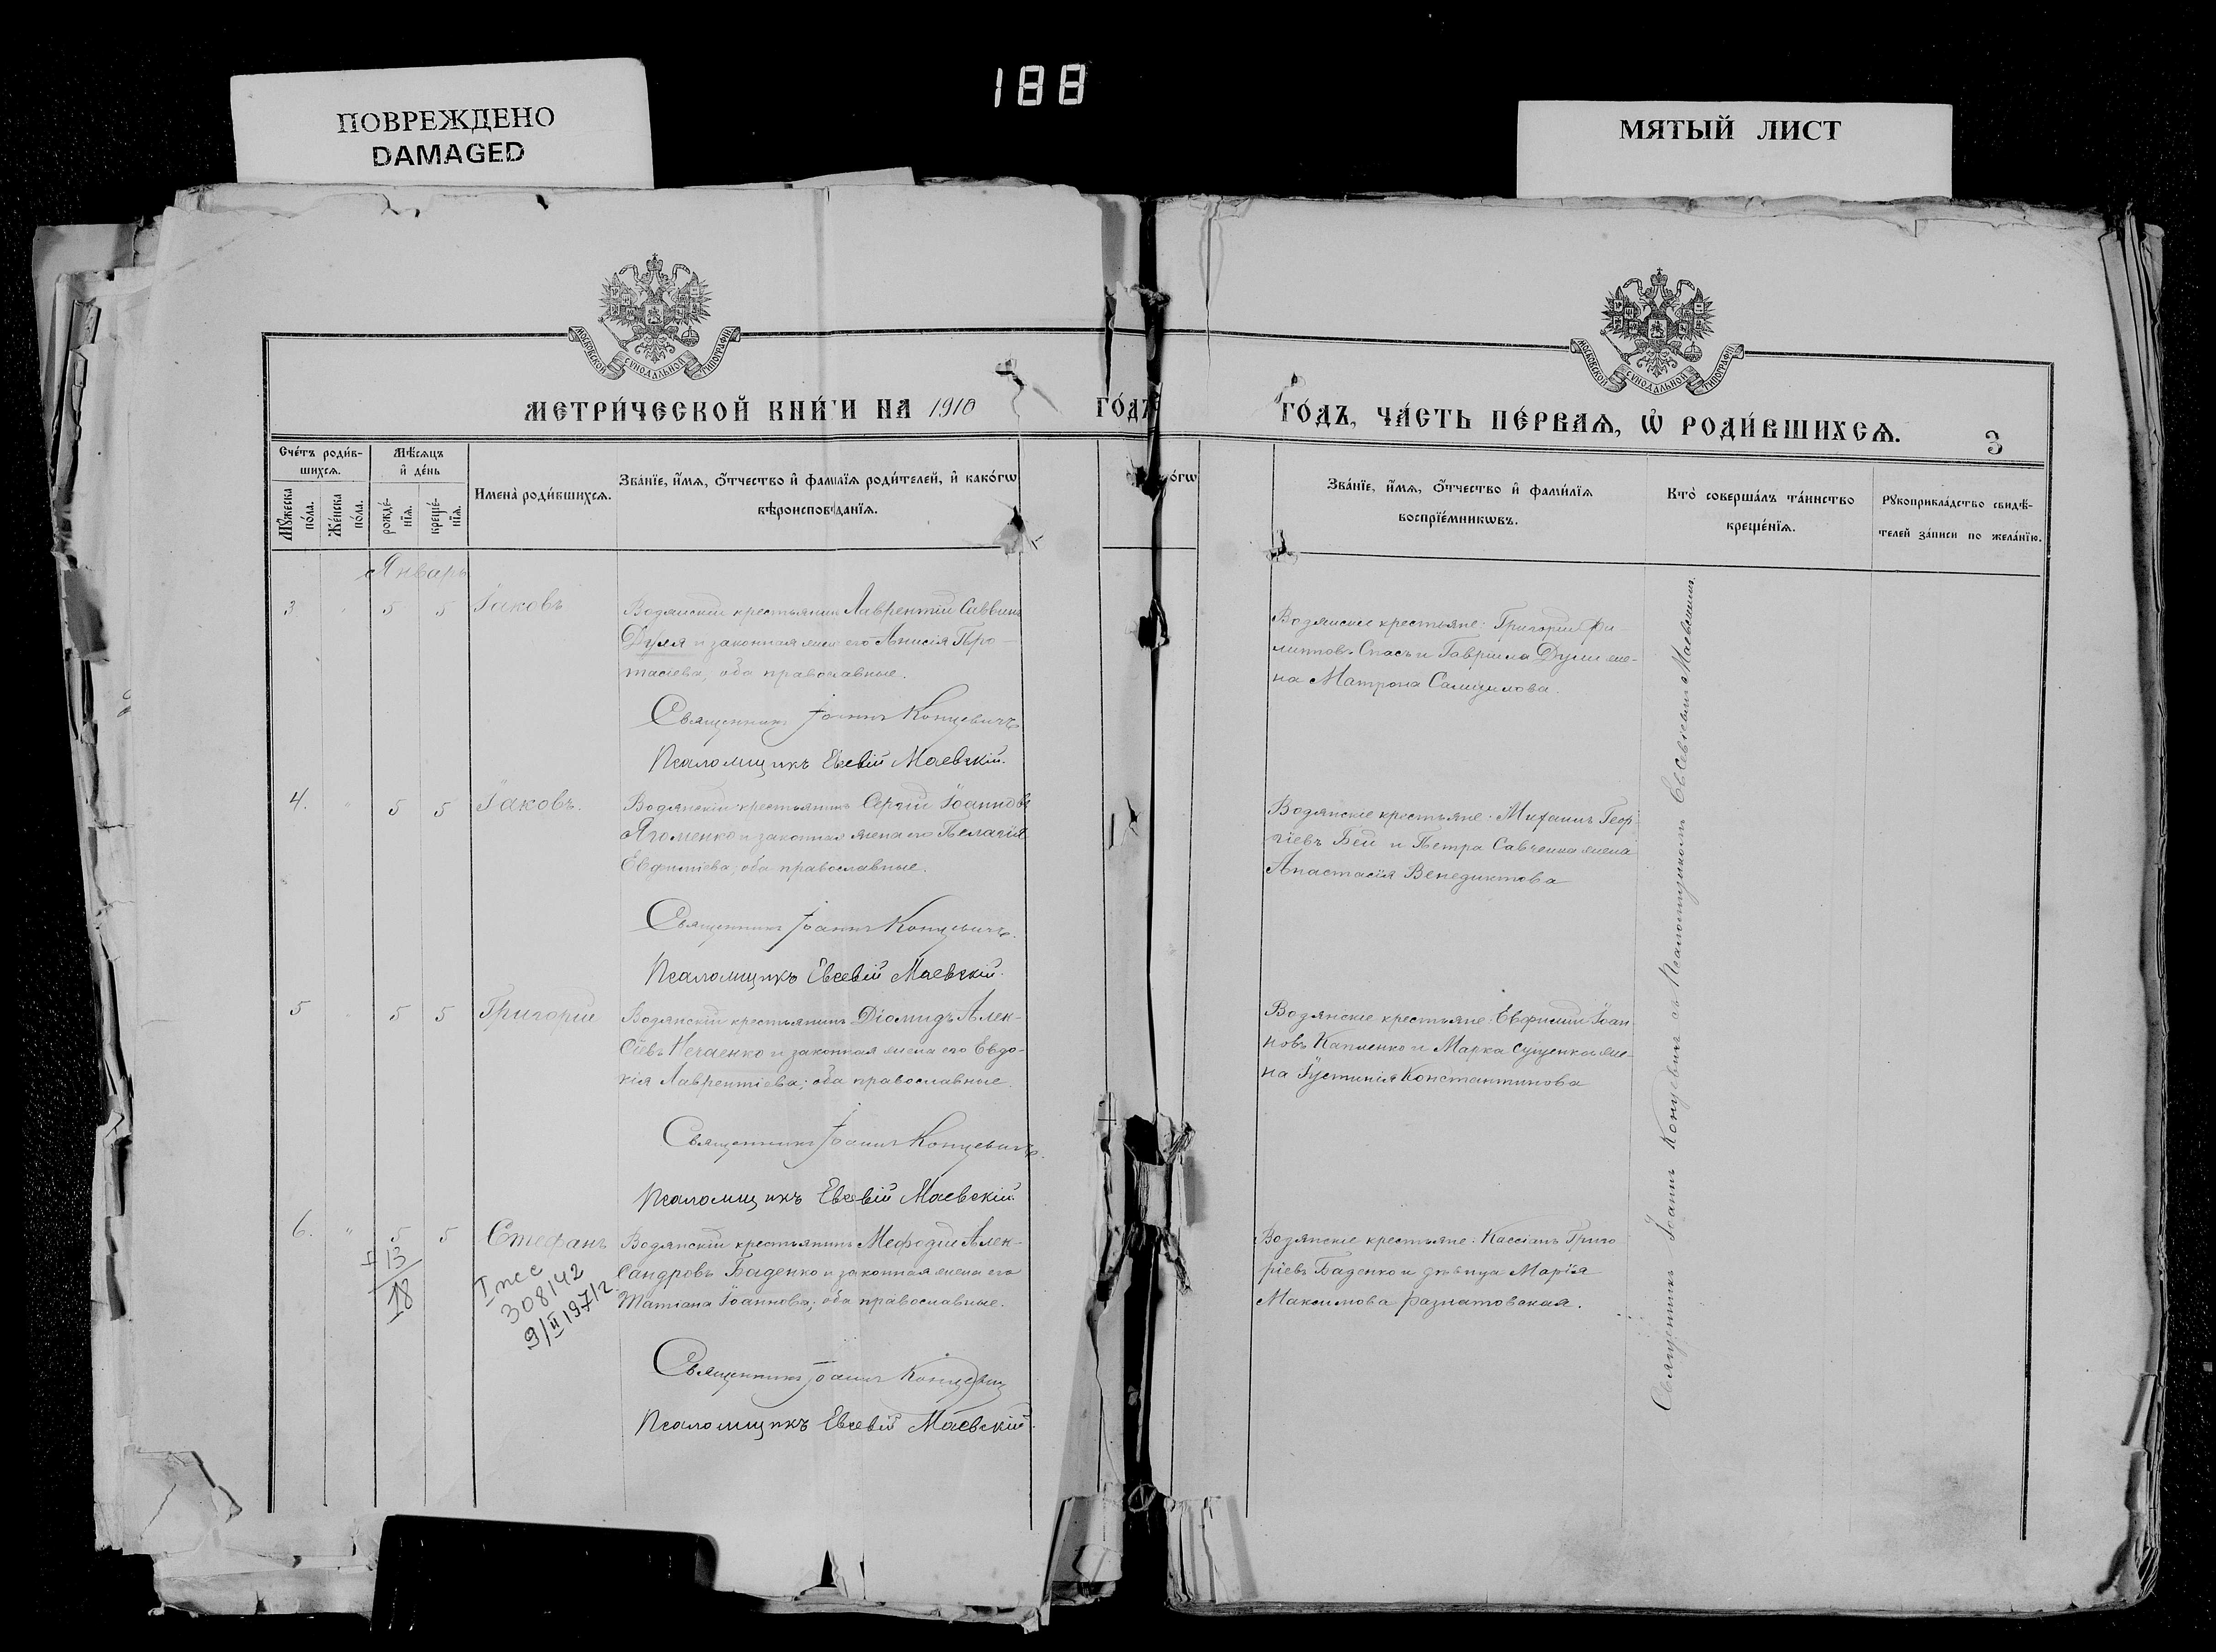 188
ПОВРЕЖДЕНО
DAMAGED
МЯТЫЙ ЛИСТ
МОСКОВСКОЙ СУНОДАЛЬНОЙ ТИПОГРАФІИ
МОСКОВСКОЙ СУНОДАЛЬНОЙ ТИПОГРАФІИ
МЕТРИ́ЧЕСКОЙ КНИ́ГИ НА 1910 ГО́ДЪ
ГО́ДЪ, ЧА́СТЬ ПЕ́РВАѦ, Ѡ҆ РОДИ́ВШИХСѦ.
3
Сче́тъ роди́в-
шихсѧ.
Мꙋ́жеска по́ла.
Же́нска по́ла.
Мѣ́сѧцъ
и҆ де́нь
рожде́-
нїѧ.
креще́-
нїѧ.
Имена̀ роди́вшихсѧ.
Зва́нїе, и҆́мѧ, ѻ҆́тчество и҆ фами́лїѧ роди́телей, и҆ како́гѡ
вѣроисповѣ́данїѧ.
о́гѡ
Зва́нїе, и҆́мѧ, ѻ҆́тчество и҆ фами́лїѧ
воспрїе́мникѡвъ.
Кто̀ соверша́лъ та́инство
креще́нїѧ.
Рꙋкоприкла́дство свидѣ́-
телей за́писи по жела́нїю.
Январь
3 " 5 5 Іаковъ
Водянскій крестьянинъ Лаврентій Саввинъ
Дуля и законная жена его Анисія Про-
тасіева; оба православные.
Священникъ Іоаннъ Концевичъ
Псаломщикъ Евсевій Маевскій.
Водянскіе крестьяне: Григорій Фи-
липповъ Спасъ и Гавріила Дули же-
на Матрона Самуилова.
4. " 5 5 Іаковъ.
Водянскій крестьянинъ Сергій Іоанновъ
Ягоменко и законная жена его Пелагія
Евфиміева; оба православные.
Священникъ Іоаннъ Концевичъ.
Псаломщикъ Евсевій Маевскій.
Водянскіе крестьяне: Михаилъ Геор-
гіевъ Бей и Петра Савченка жена
Анастасія Венедиктова
5 " 5 5 Григорій
Водянскій крестьянинъ Діомидъ Алек-
сіевъ Нечаенко и законная жена его Евдо-
кія Лаврентіева; оба православные.
Священникъ Іоаннъ Концевичъ.
Псаломщикъ Евсевій Маевскій.
Водянскіе крестьяне: Евфимій Іоан-
новъ Капленко и Марка Сущенка же-
на Іустинія Константинова
6. " 5 5 Стефанъ
13
18
308142
9/II 1971г.
Водянскій крестьянинъ Мефодій Алек-
сандровъ Баденко и законная жена его
Татіана Іоаннова; оба православные.
Священникъ Іоаннъ Концевичъ
Псаломщикъ Евсевій Маевскій.
Водянскіе крестьяне: Кассіанъ Григо-
ріевъ Баденко и дѣвица Марія
Максимова
Священникъ Іоаннъ Концевичъ съ Псаломщикомъ Евсевіемъ Маевскимъ.